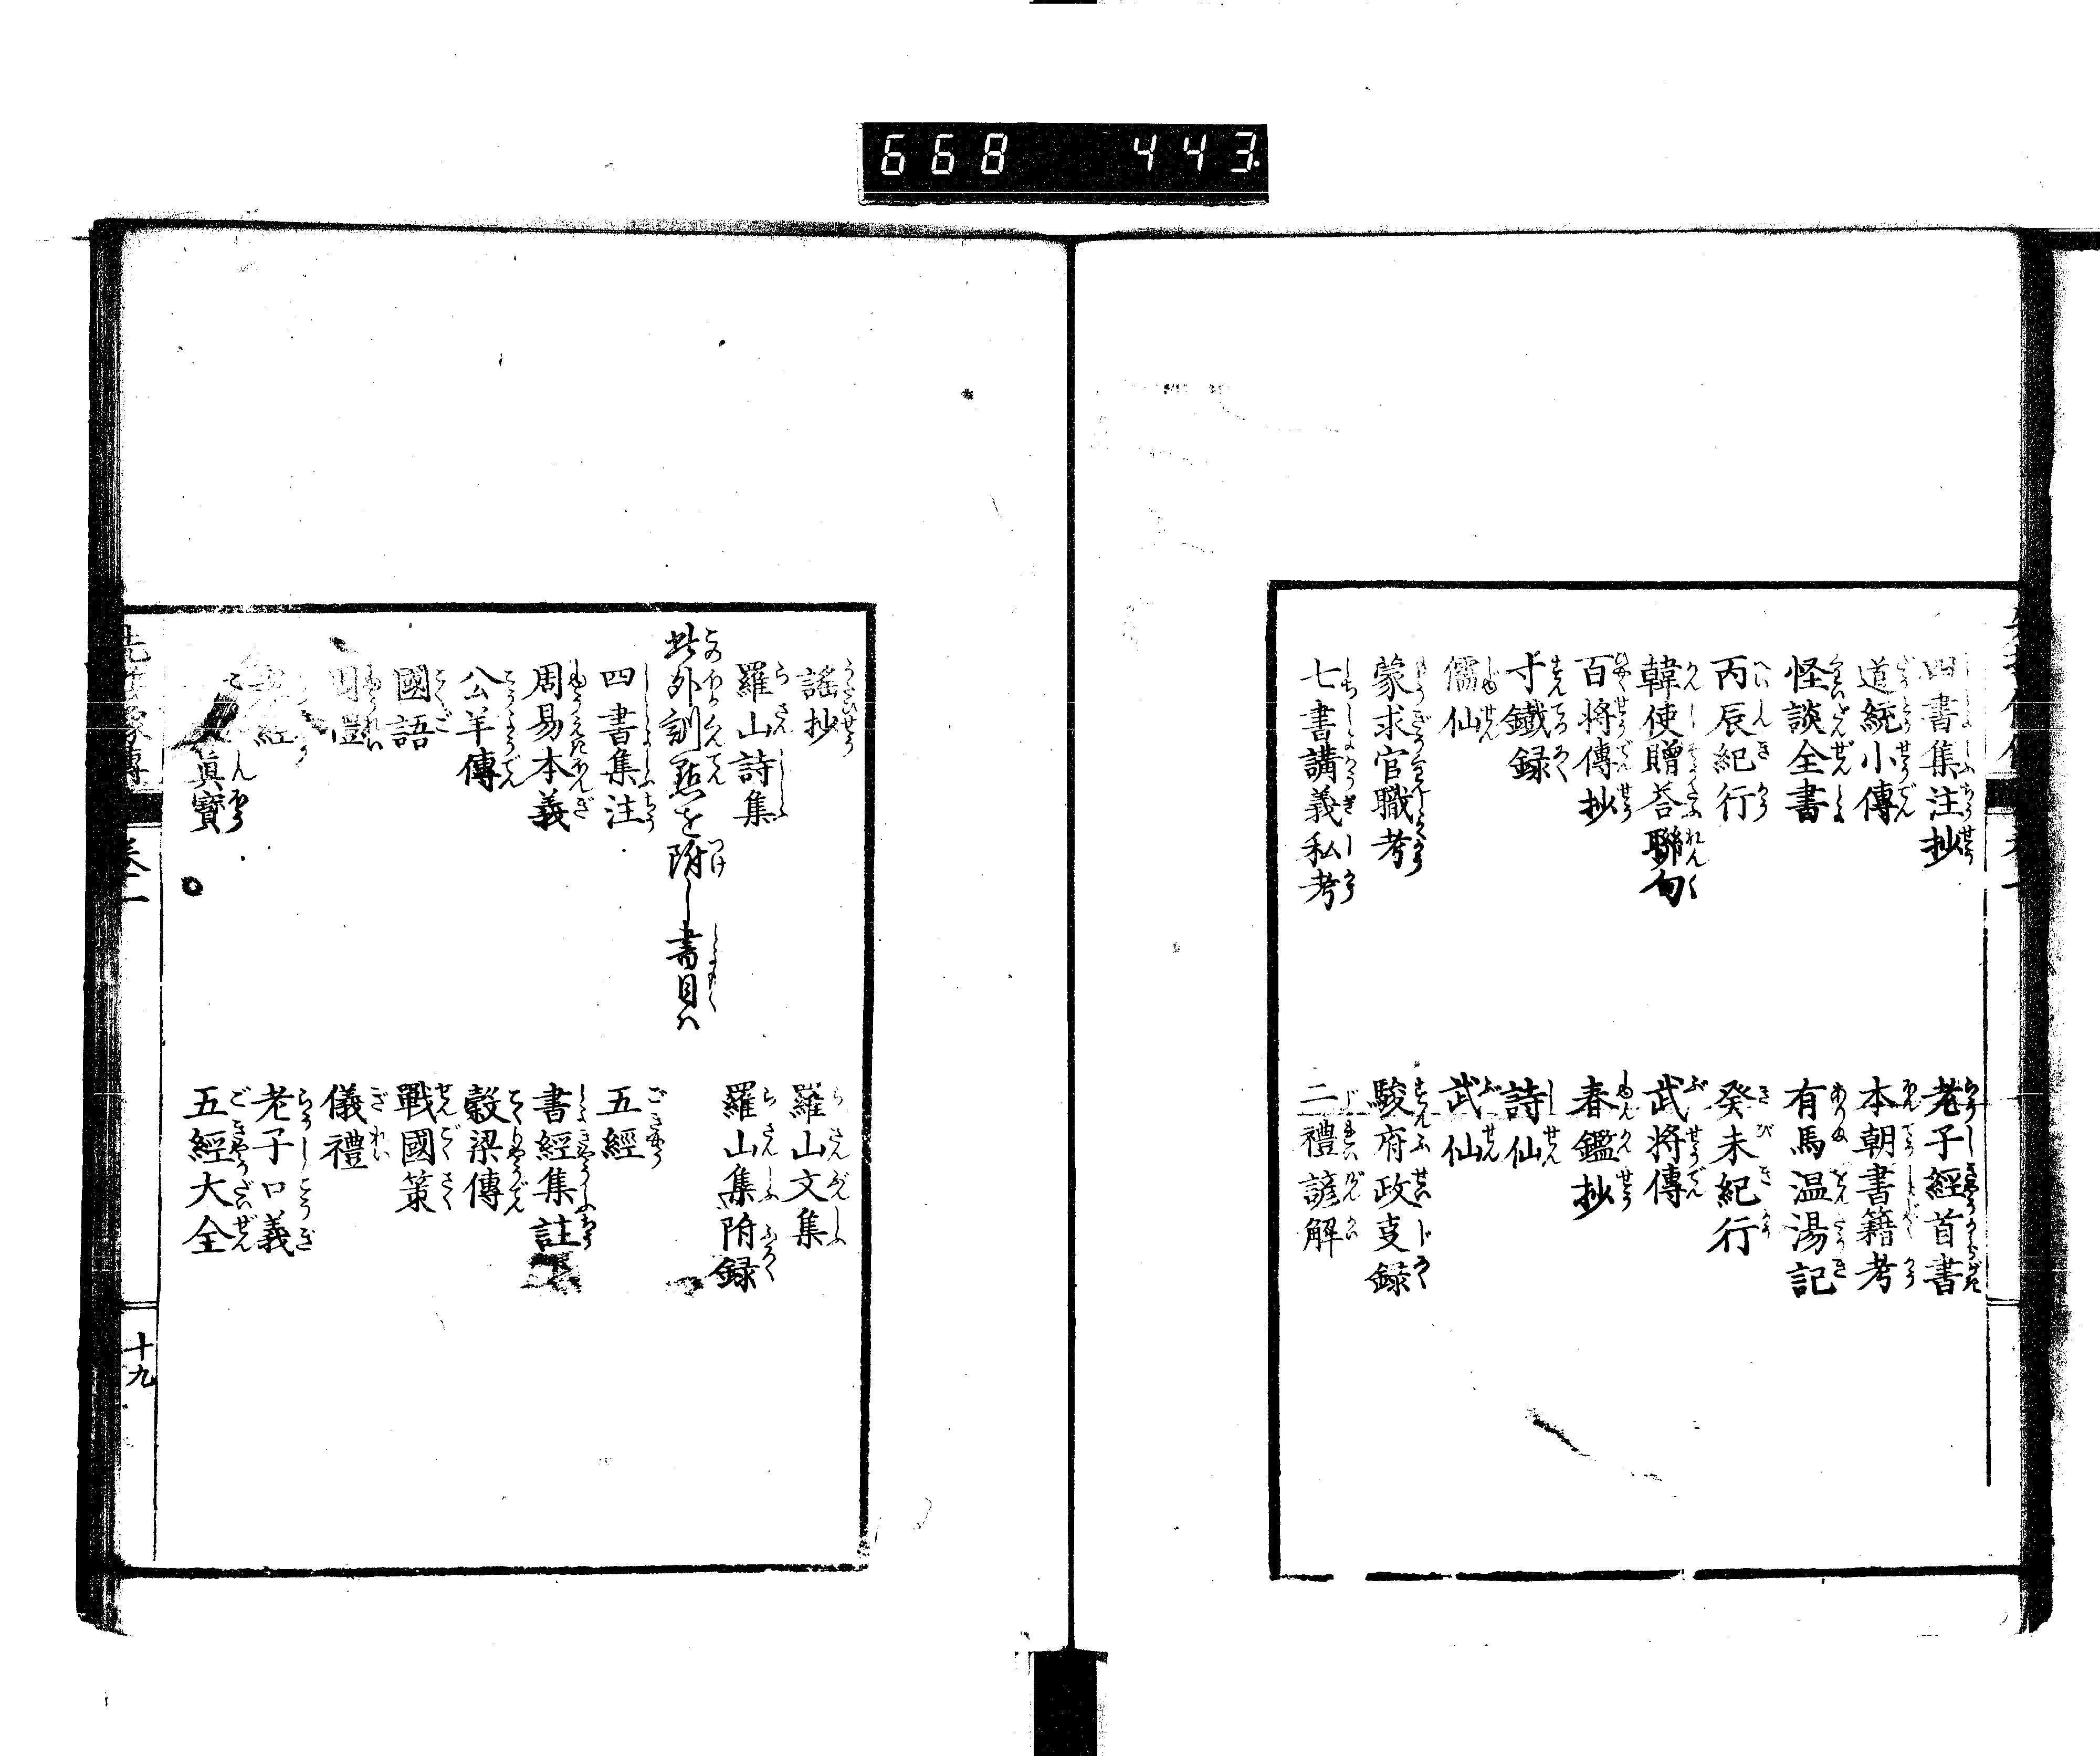 668 443
四書集注抄 老子經首書
道統小傳 本朝書籍考
怪談全書 有馬温湯記
丙辰紀行 癸未紀行
韓使贈荅聯句 武将傳
百将傳抄 春鑑抄
寸鐵録 詩仙
儒仙 武仙
蒙求官職考 駿府政叓録
七書講義私考 二禮諺解
謡抄 羅山文集
羅山詩集 羅山集附録
此外訓點を附し書目ハ
四書集注 五經
周易本義 書經集註
公羊傳 穀梁傳
國語 戰國策
周禮 儀禮
經 老子口義
眞寶 五經大全
十九